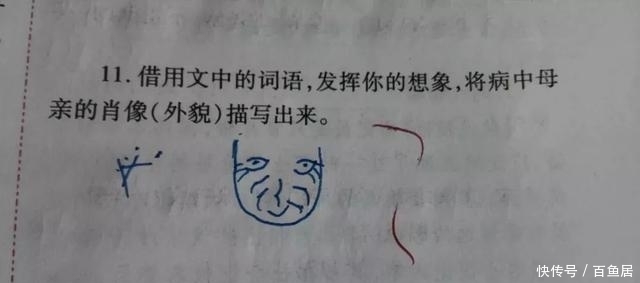 11.借用文中的词语,发挥你的想象,将病中母
亲的肖像(外貌)描写出来。
快传号／百鱼居